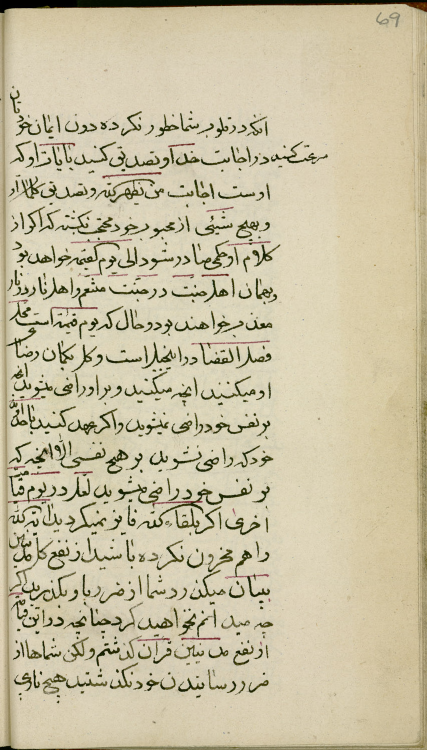 69
انکه در قلوب شما خطور نکرده دون ایمان خودتان
سرعت کنید در اجابت خداوند و تصدیق کنید بایات او که
اوست اجابت من یظهره الله و تصدیق کلام او
و بهیچ شیئی از محبوب خود محتجب نگشته که اگر از
کلام او حکمی صادر شود الی یوم القیمه خواهد بود
و بهمان اهل جنت در جنت متنعم و اهل نار در نار
معذب خواهند بود و حال که یوم قیمة است محل
فصل القضا در انجیل است و کل بگمان رضای
او میکنید انچه میکنید و بر او راضی میشوید انچه
بر نفس خود راضی نمیشوید و اگر عهد کنید با خدای
خود که راضی نشوید بر هیچ نفسی الا انچه که
بر نفس خود راضی میشوید لعل در یوم قیامت
اخری اگر بلقاء الله فایز نمیگردید ایة الله
را هم محزون نکرده باشید از نفع کل مدینین
ببیان میگذرد شما از ضرر باو بگذرید اگر
چه میدانم نخواهید کرد چنانچه در این قیامت
از نفع مدینین قران گذشتم ولکن شماها از
ضرر رسانیدن خود نگذشتید هیچ ناری